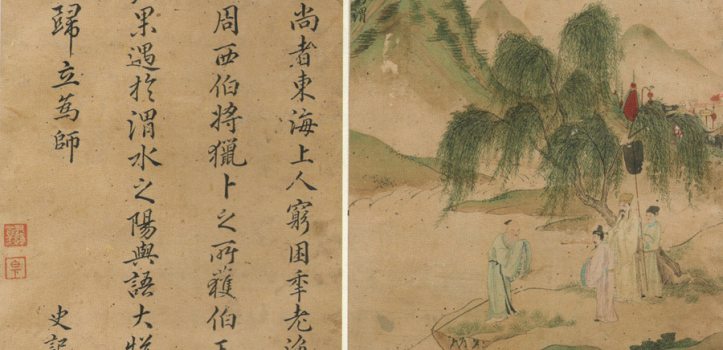 尚者東海上人窮困秊老
周西伯將獵卜之所獲伯
果遇於渭水之陽與語大
歸立為師
史記